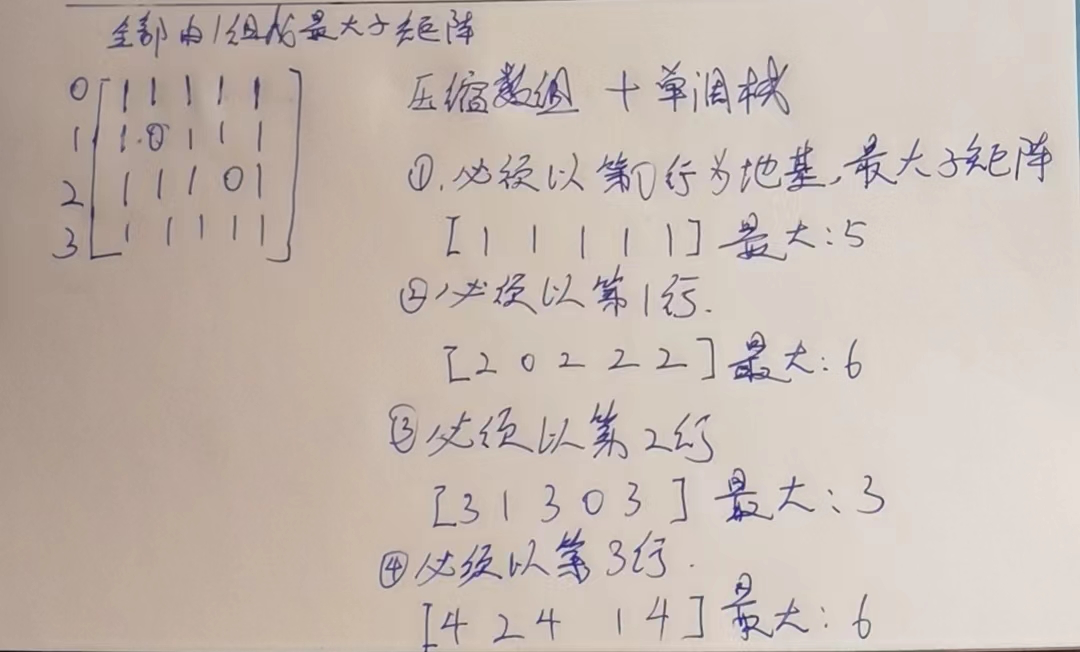 全部由1组成最大子矩阵
0 [1 1 1 1 1]
1 [1 0 1 1 1]
2 [1 1 1 0 1]
3 [1 1 1 1 1]
压缩数组 + 单调栈
①.必须以第0行为地基,最大子矩阵
[1 1 1 1 1] 最大:5
②必须以第1行.
[2 0 2 2 2] 最大:6
③必须以第2行
[3 1 3 0 3] 最大:3
④必须以第3行.
[4 2 4 1 4] 最大:6